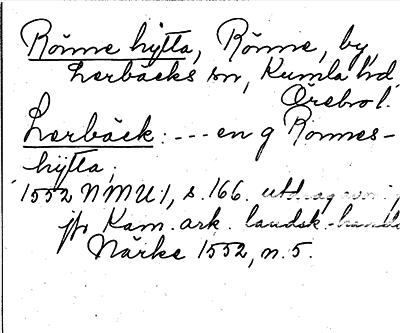 Rönne hytta, Rönne, by,
Lerbäcks sn, Kumla hd
Örebro l.
Lerbäck: --- en g Rönnes-
hÿtta;
1552 NMU:1, s. 166. utdrag av
jfr Kam. ark. landsk. handl
Närke 1552, n. 5.